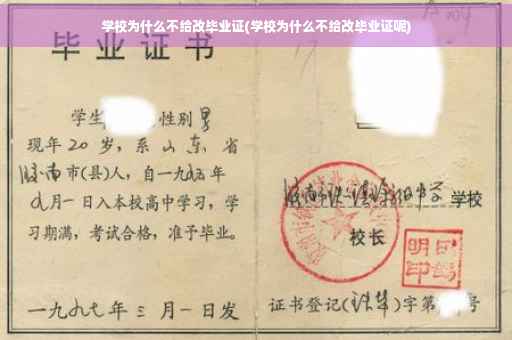 学校为什么不给改毕业证(学校为什么不给改毕业证呢)
毕业证书
学生 性别男
现年20岁，系山东省
济南市(县)人，自一九九五年
九月一日入本校高中学习，学
习期满，考试合格，准予毕业。
一九九七年三月一日发
学校
校长
证书登记( )字第 号